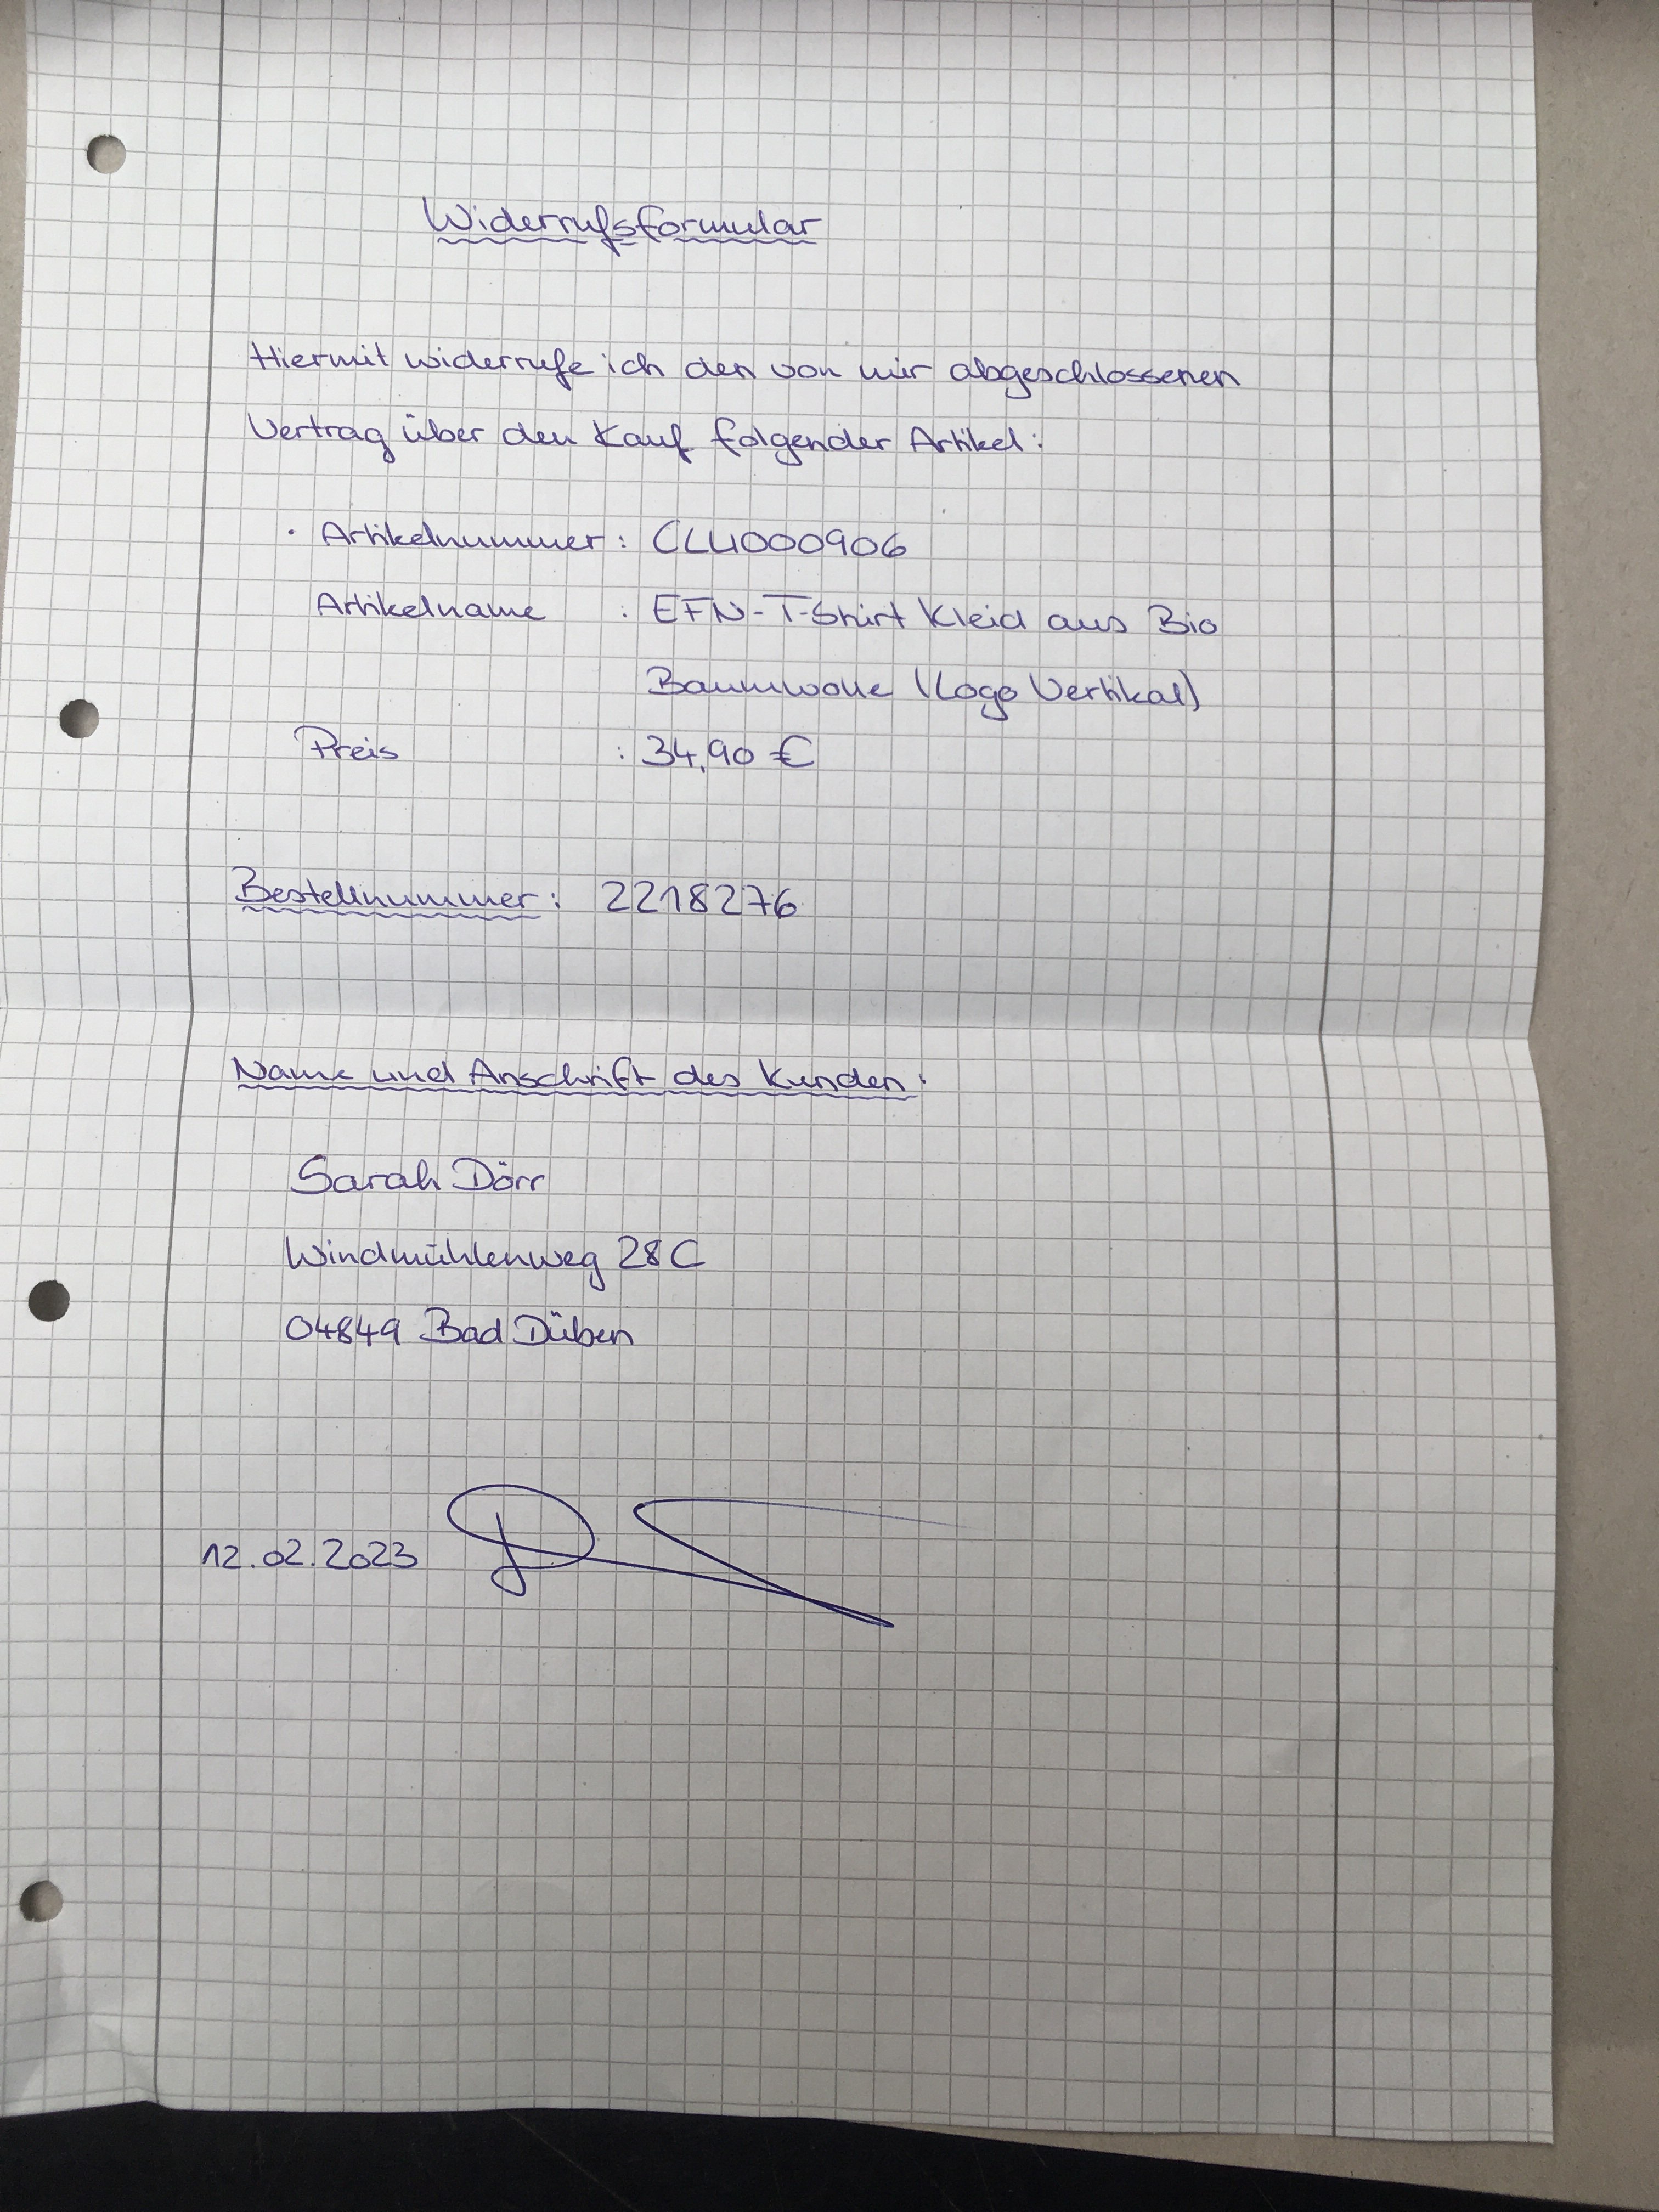 Widerrufsformular
Hiermit widerrufe ich den von mir abgeschlossenen
Vertrag über den Kauf folgender Artikel:
· Artikelnummer: CLU000906
Artikelname : EFN-T-Shirt Kleid aus Bio
Baumwolle (Logo Vertikal)
Preis : 34,90 €
Bestellnummer: 2218276
Name und Anschrift des Kunden:
Sarah Dörr
Windmühlenweg 28C
04849 Bad Düben
12.02.2023